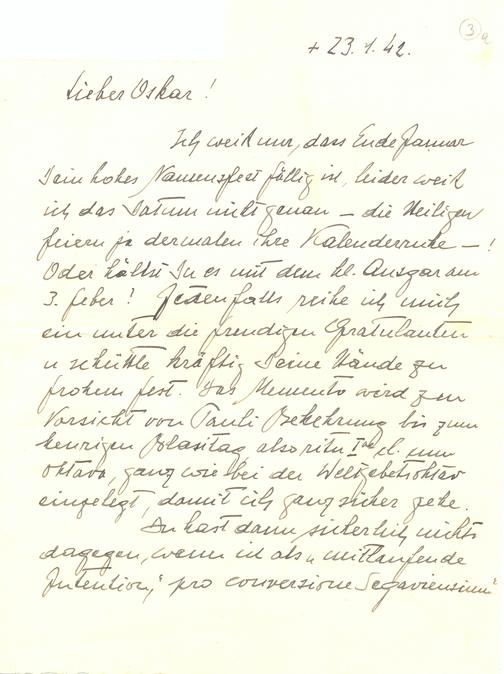 3a
+ 23.1.42.
Lieber Oskar!
Ich weiß nur, dass Ende Januar
Dein hohes Namensfest fällig ist, leider weiß
ich das Datum nicht genau – die Heiligen
feiern ja dermalen ihre Kalenderruhe –!
Oder hältst Du es mit dem hl. Ansgar am
3. feber? Jedenfalls reihe ich mich
ein unter die freudigen Gratulanten
u schüttle kräftig Deine Hände zu
frohem fest. Das Memento wird zur
Vorsicht von Pauli Bekehrung bis zum
heurigen Blasitag, also ritu I cl. cum
oktava, ganz wie bei der Weltgebetsoktav
eingelegt, damit ich ganz sicher gehe.
Du hast dann sicherlich nichts
dagegen, wenn ich als „mitlaufende
Intention“, „pro conversione Segaviensium“